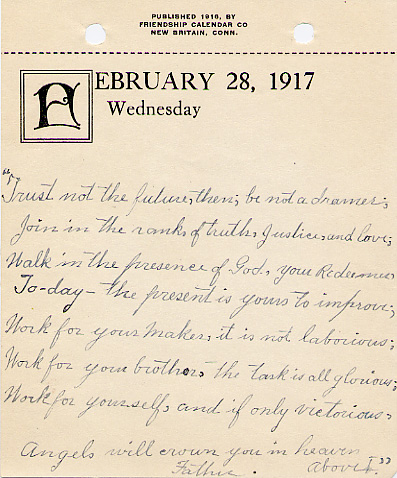 PUBLISHED 1916, BY
FRIENDSHIP CALENDAR CO
NEW BRITAIN, CONN.
FEBRUARY 28, 1917
Wednesday
"Trust not the future, then; be not a dramer;
Join in the ranks of truth, Justice, and love;
Walk in the presence of God, your Redeemer
To-day - the present is yours to improve;
Work for your Maker, it is not laborious;
Work for your brother, the task is all glorious;
Work for yourself, and if only victorious;
Angels will crown you in heaven
above."
Father.